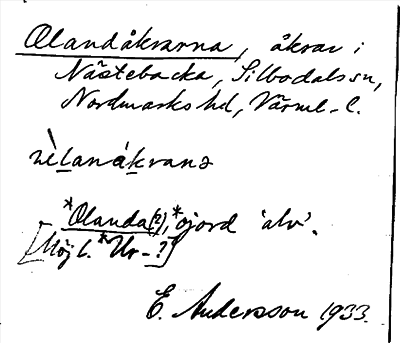 Olandåkrarna, åkrar i
Nästebacka, Silbodals sn,
Nordmarks hd, Värml. l.
*Olanda(?), *ojord 'alv'.
[Möjl. *Ur-?]
E. Andersson 1933.